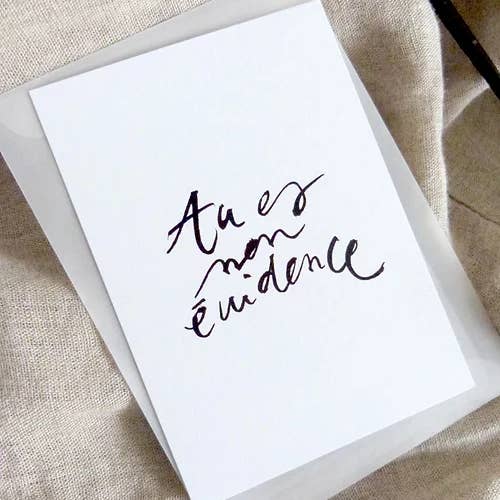 Au es
mon
évidence